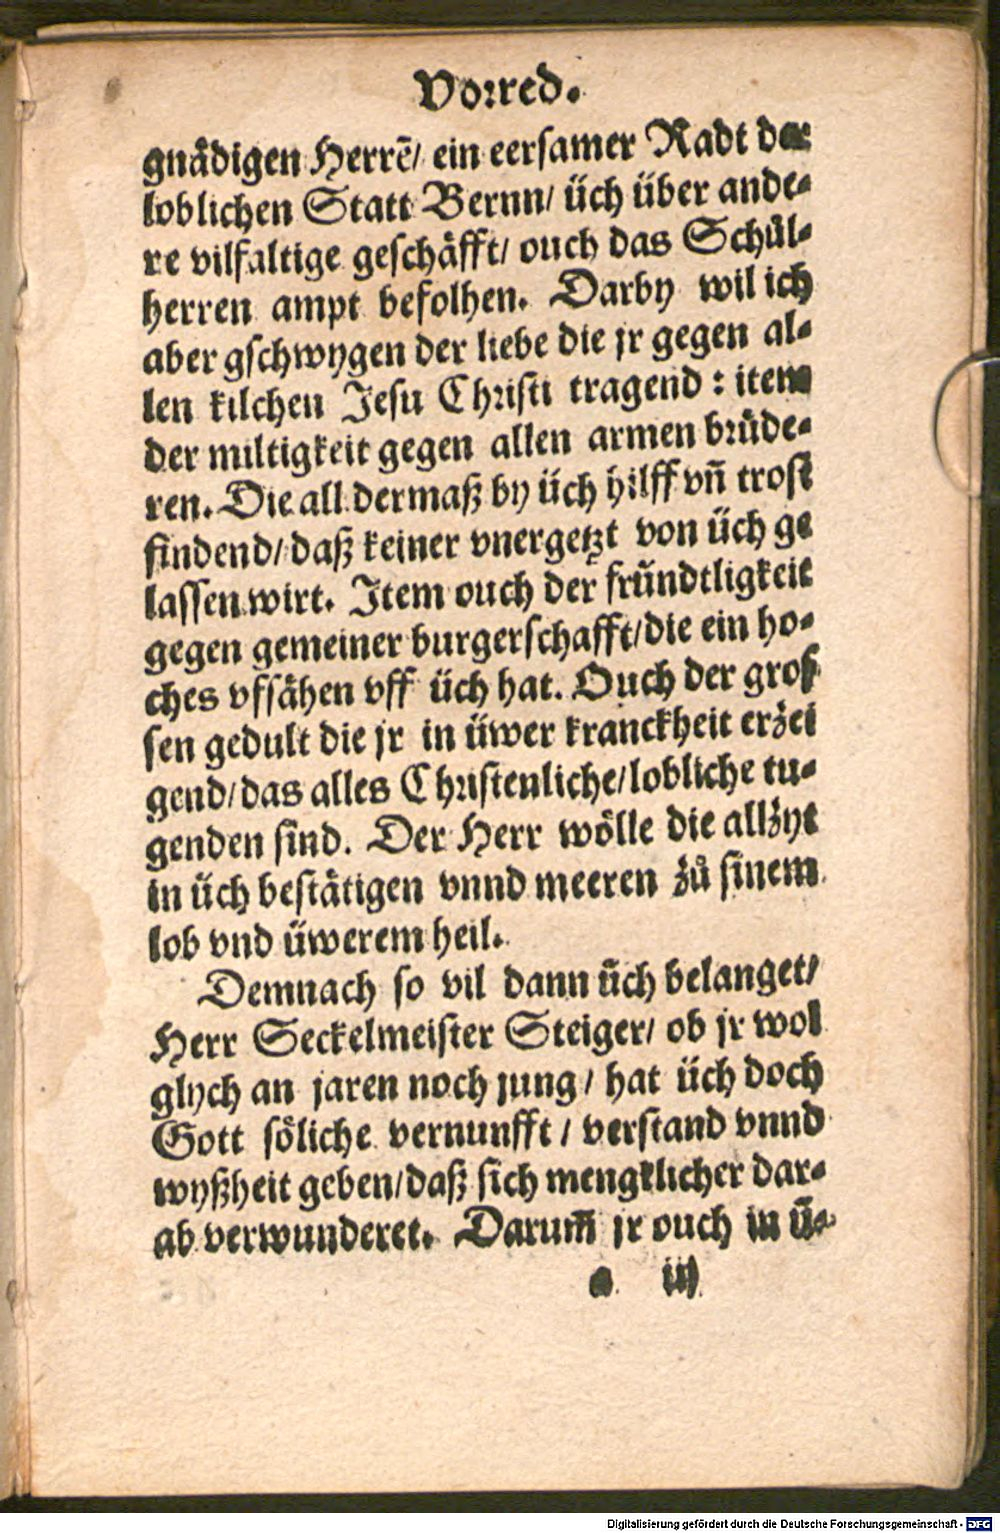 Vorred.
gnådigen Herrē/ ein eersamer Radt der
loblichen Statt Bernn/ üch über ande-
re vilfaltige geschåfft/ ouch das Schůl-
herren ampt befolhen. Darby wil ich
aber gschwygen der liebe die jr gegen al-
len kilchen Jesu Christi tragend: item
der miltigkeit gegen allen armen brůde-
ren. Die all dermaß by üch hilff vñ trost
findend/ daß keiner vnergetzt von üch ge
lassen wirt. Item ouch der fründtligkeit
gegen gemeiner burgerschafft/ die ein ho-
ches vfsåhen vff üch hat. Ouch der gros
sen gedult die jr in üwer kranckheit erzei
gend/ das alles Christenliche/ lobliche tu-
genden sind. Der Herr wölle die allzyt
in üch beståtigen vnnd meeren zů sinem
lob vnd üwerem heil.
Demnach so vil dann üch belanget/
Herr Seckelmeister Steiger/ ob jr wol
glych an jaren noch jung/ hat üch doch
Gott söliche vernunfft/ verstand vnnd
wyßheit geben/ daß sich mengklicher dar-
ab verwunderet. Darum̄ jr ouch in ü-
a iij
Digitalisierung gefördert durch die Deutsche Forschungsgemeinschaft - DFG